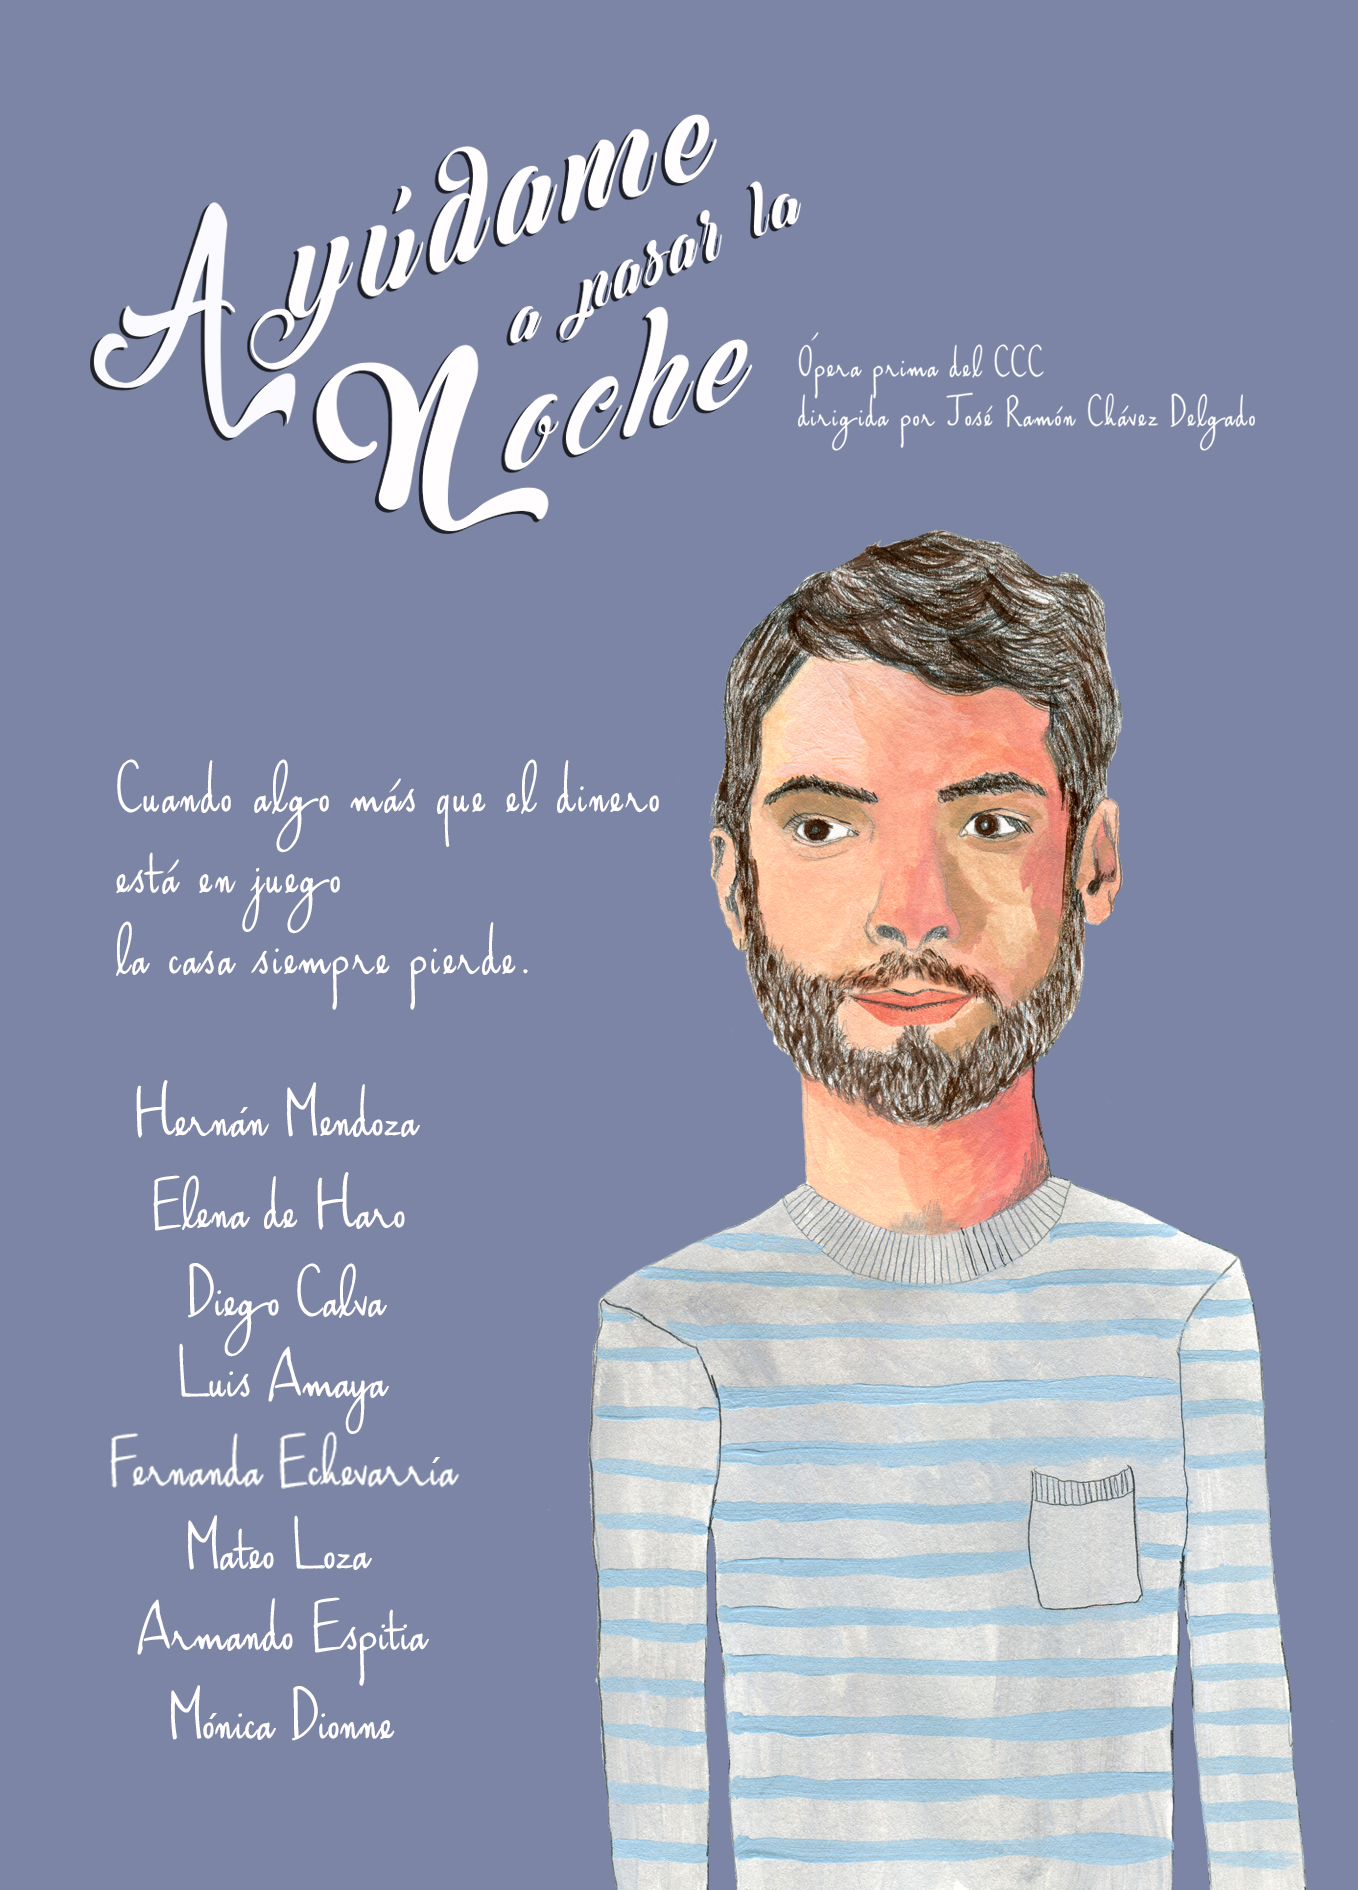 Ayúdame
a pasar la
Noche
Ópera prima del CCC
dirigida por José Ramón Chávez Delgado
Cuando algo más que el dinero
está en juego
la casa siempre pierde.
Hernán Mendoza
Elena de Haro
Diego Calva
Luis Amaya
Fernanda Echevarría
Mateo Loza
Armando Espitia
Mónica Dionne